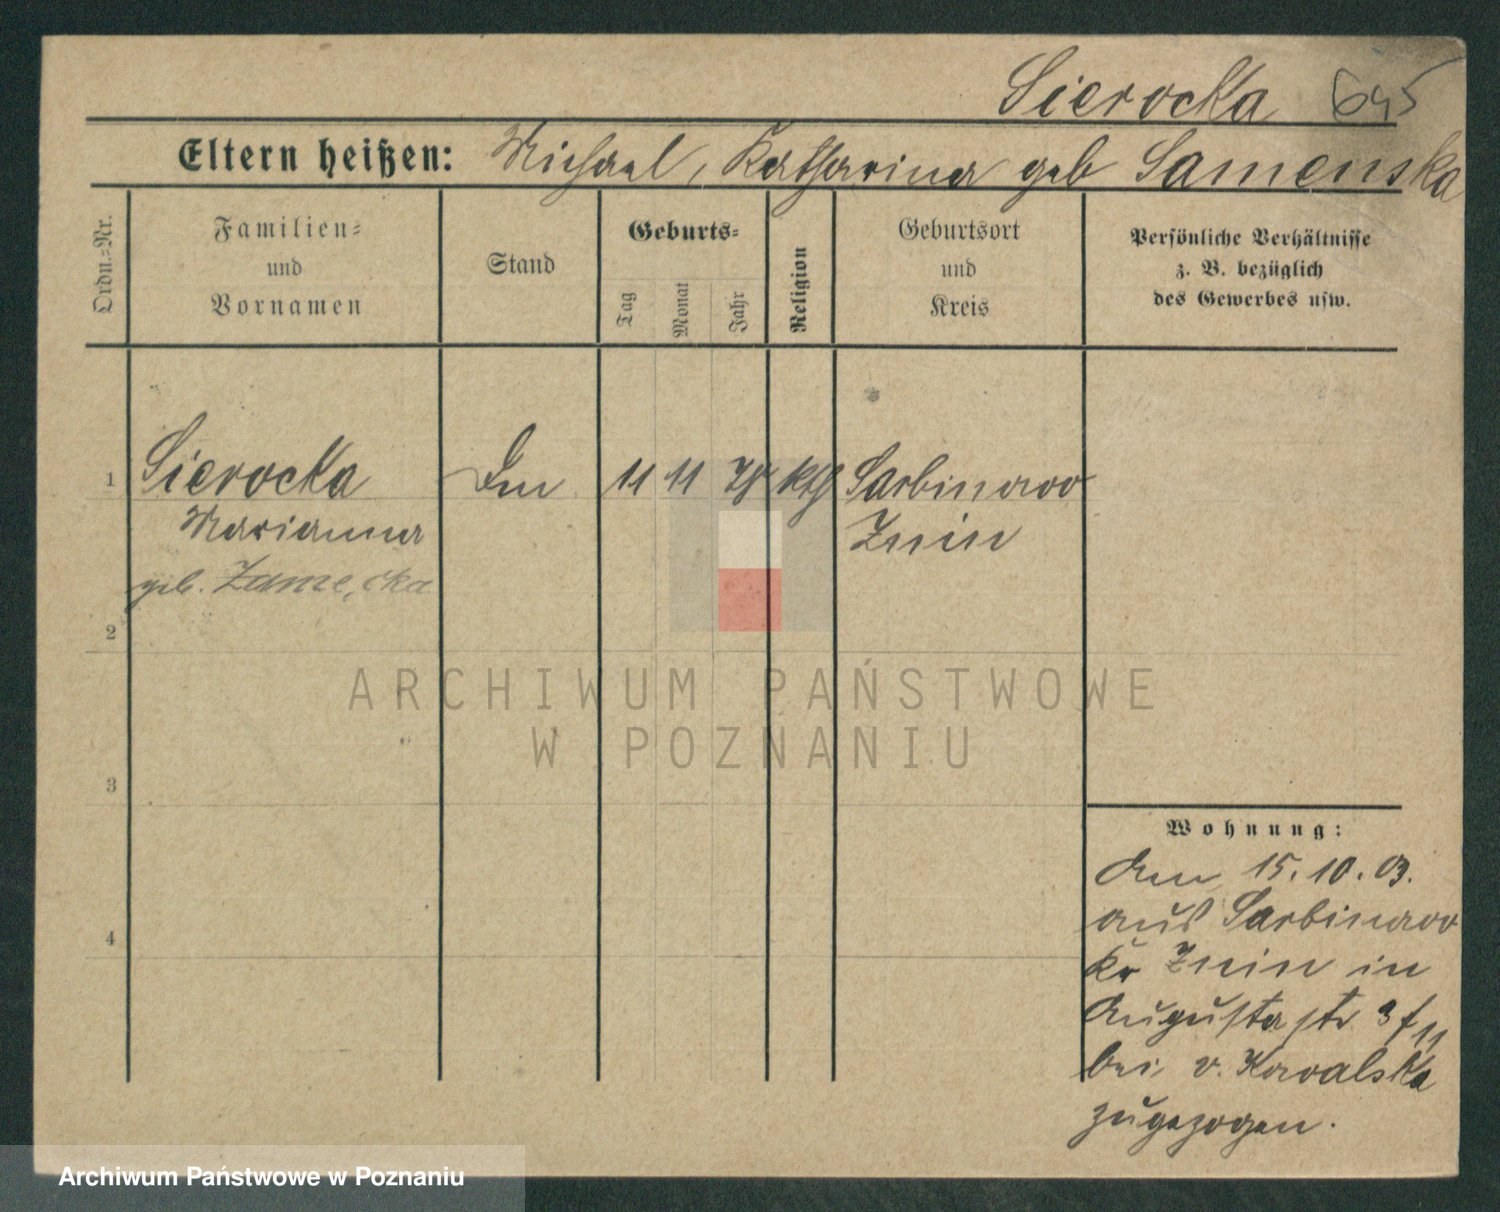 Sierocka 695
Eltern heißen: Michael, Katharina geb Samenska
Ordn.=Nr.
Familien=
und
Vornamen
Stand
Geburts=
Tag
Monat
Jahr
Religion
Geburtsort
und
Kreis
Persönliche Verhältnisse
z. B. bezüglich
des Gewerbes usw.
1 Sierocka 11 11 kth Sarbinowo
Marianna Znin
geb.
2
3
4
Wohnung:
Am 15. 10. 03.
aus Sarbinowo
Kr Znin in
Augusta str 3 f 11
bei v. Kowalska
zugezogen.
ARCHIWUM PAŃSTWOWE
W POZNANIU
Archiwum Państwowe w Poznaniu